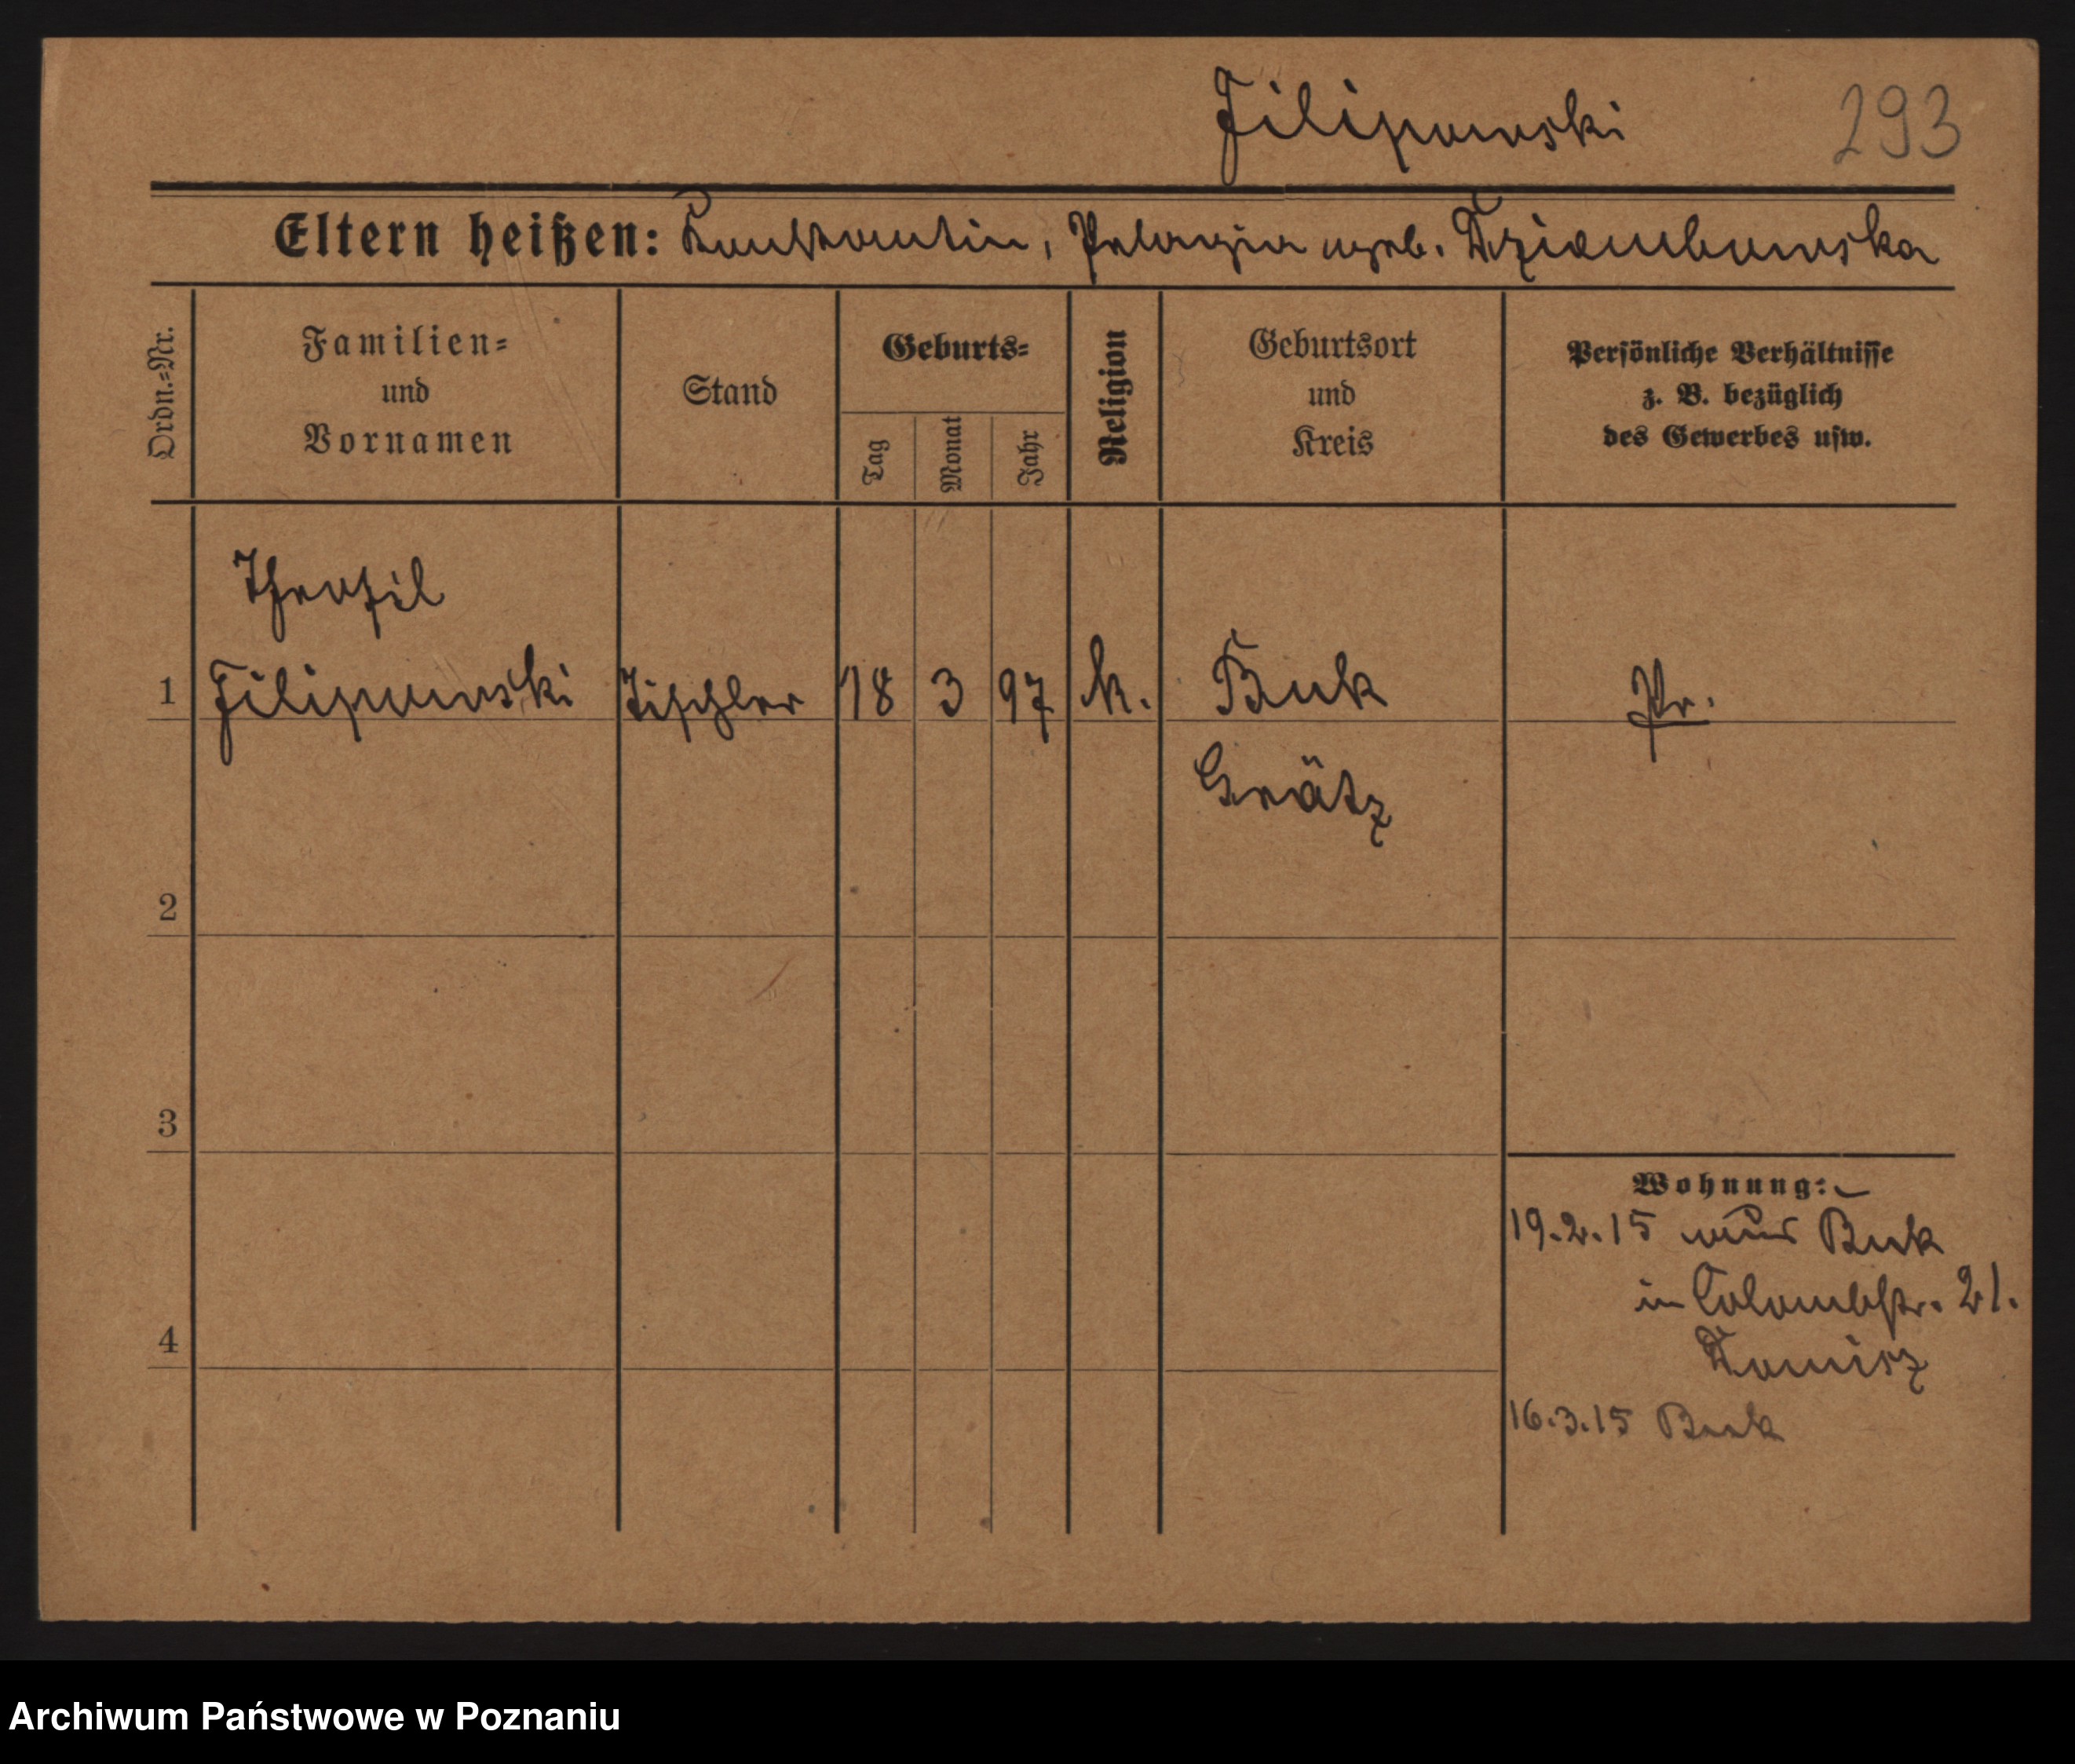 Filipowski 293
Eltern heißen: Konstantin, Pelagia geb. Dziembowska
Ordn.=Nr.
Familien=
und
Vornamen
Stand
Geburts=
Tag
Monat
Jahr
Religion
Geburtsort
und
Kreis
Persönliche Verhältnisse
z. B. bezüglich
des Gewerbes usw.
Theofil
1 Filipowski Tischler 18 3 97 k. Buk Pr.
Grätz
2
3
Wohnung:
19.2.15 Buk
in Colombstr. 21.
4
16.3.15 Buk
Archiwum Państwowe w Poznaniu